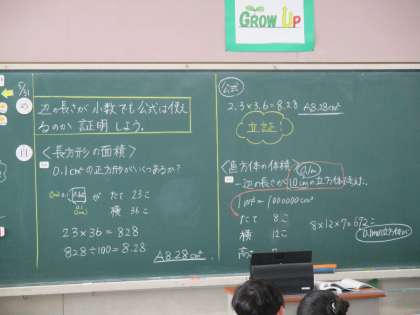 GROW UP
5/31
め
辺の長さが小数でも公式は使え
るのか証明しよう。
自
〈長方形の面積〉
0.1cm²の正方形がいくつあるか?
たて 23こ
横 36こ
23×36=828
828÷100=8.28
A8.28cm²
公式
2.3×3.6=8.28 A8.28cm²
立証!
〈直方体の体積〉
0.1m
一辺の長さが10cmの立方体で考えた。
1m³=1000000cm³
たて 8こ
横 12こ
高
8×12×7=672こ